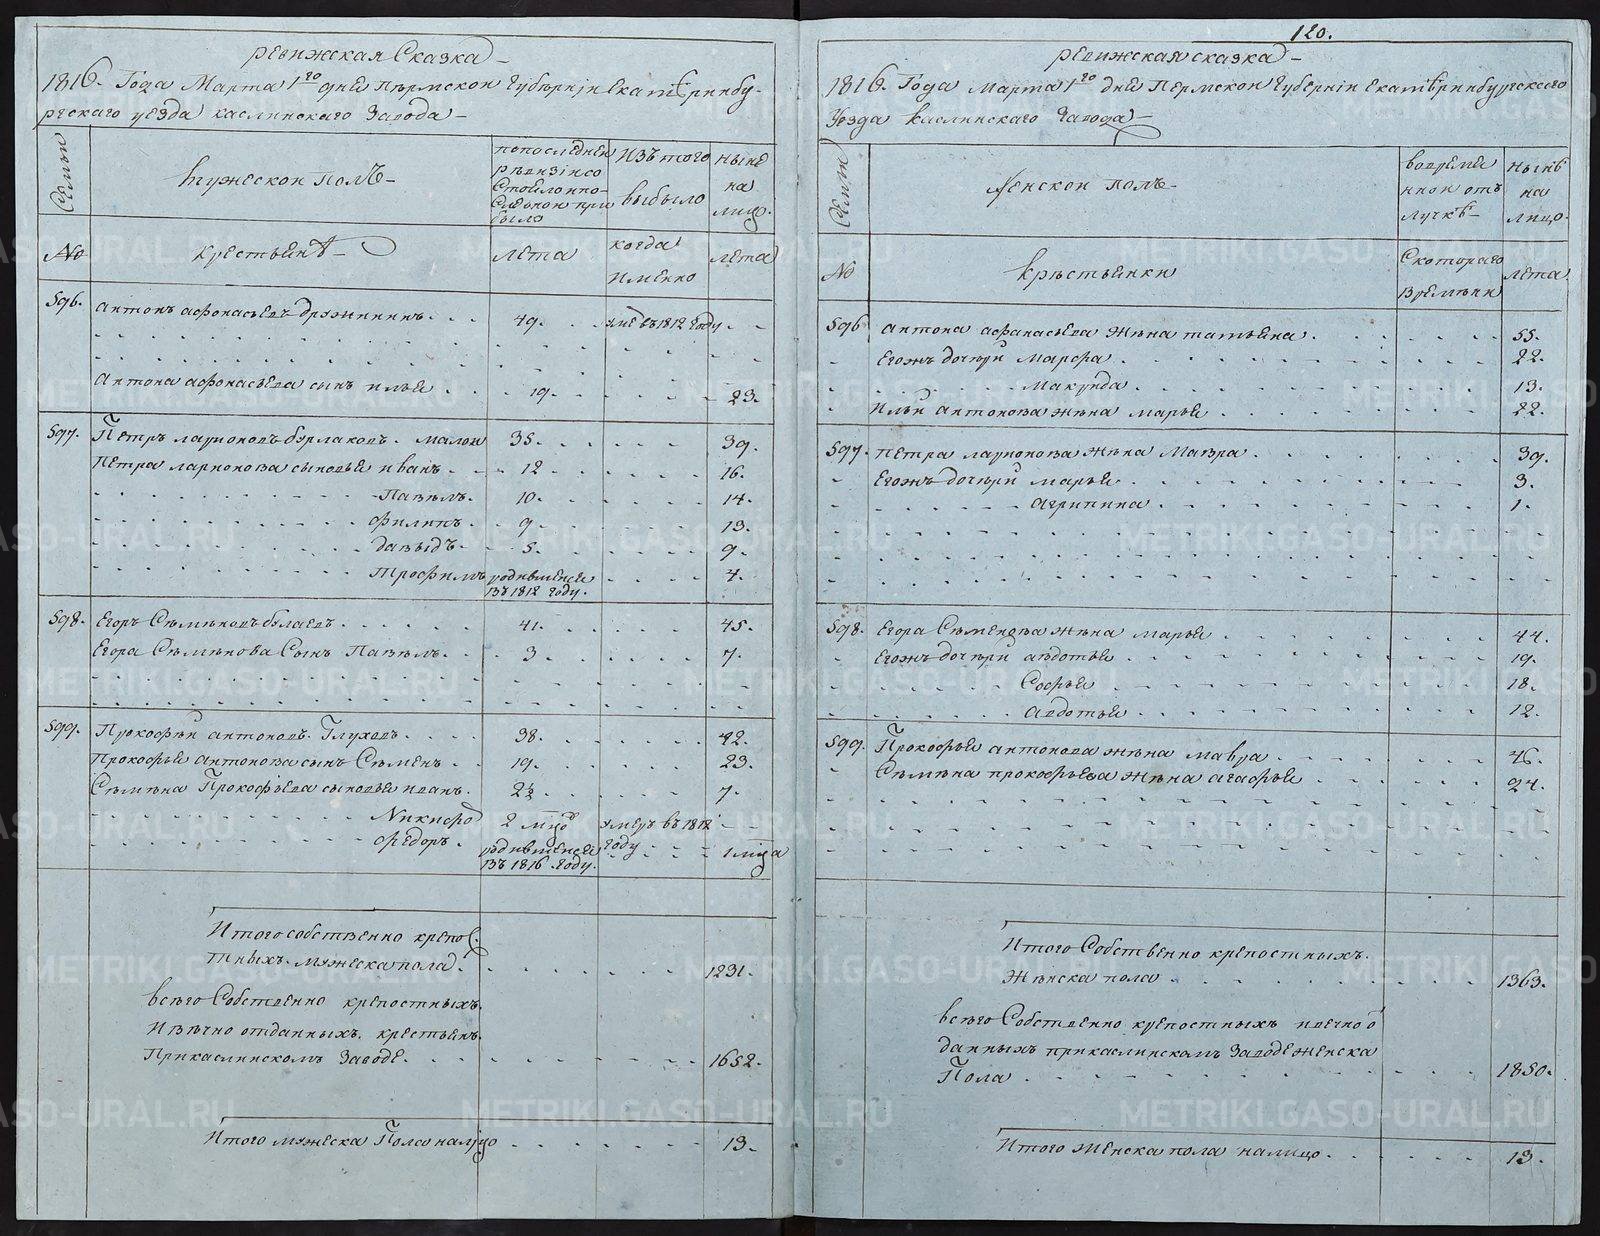 ревижская Сказка
1816. Года Марта 1го дней пермской Губернiи Екатеринбу-
ргскаго уезда каслинскаго Завода
Семьи
мужескои полъ
попоследней ревизiи состоило и после оной прибыло
Изъ того выбыло
ныне на лицо.
No
крестьянѣ
лета
когда именно
лета
596. антонъ афонасьевъ дружининъ. 49. умеръ 1812 году
Антона афонасьева сынъ илья 19. 23.
597. Петръ ларионовъ бурлаковъ. малои 35. 39.
Петра ларионова сыновья иванъ 12 16.
Павелъ. 10. 14.
филипъ. 9. 13.
давыдъ. 5. 9.
Трофимъ родившеися въ 1812 году. 4.
598. Егоръ Семеновъ булаевъ. 41. 45.
Егора Семенова Сынъ Павелъ. 3. 7.
599. Прокофѣй антоновъ Глуховъ. 38. 42.
Прокофья антонова сынъ Семенъ. 19. 23.
Семена Прокофьева сыновья иванъ. 2½ 7.
Никифоръ 2 мцо умеръ въ 1812 году
федоръ. родившеися въ 1816 году. 1 мца
Итого собственно крепос-
тныхъ. мужеска пола. 1231.
всего Собственно крепостныхъ.
И вечно отданныхъ. крестьянъ.
При каслинскомъ Заводе. 1652.
Итого мужеска Пола налицо 13.
120.
ревижская сказка
1816. Года марта 1го дней пермской Губернiи екатеринбургскаго
Уезда каслинскаго Завода
Семьи
женскои полъ
во временной отлучкѣ
нынѣ на лицо.
No
крестьянки
С котораго времяни
лета
596 антона афанасьева жена татьяна. 55.
Егожъ дочери марфа 22.
Макрида. 13.
Ильи антонова жена марья 22.
597. петра ларионова жена Мавра 39.
Егожъ дочери марья. 3.
агрипина 1.
598. Егора Семенова жена марья 44.
Егожъ дочери авдотья 19.
Софья 18.
авдотья 12.
599. Прокофья антонова жена мавра 46.
Семена прокофьева жена агафья 24.
Итого Собственно крепостныхъ.
женска пола 1363.
всего Собственно крепостныхъ и вечно о
данныхъ при каслинскомъ Заводе женска
Пола 1850.
Итого женска пола налицо. 13.
METRIKI.GASO-URAL.RU